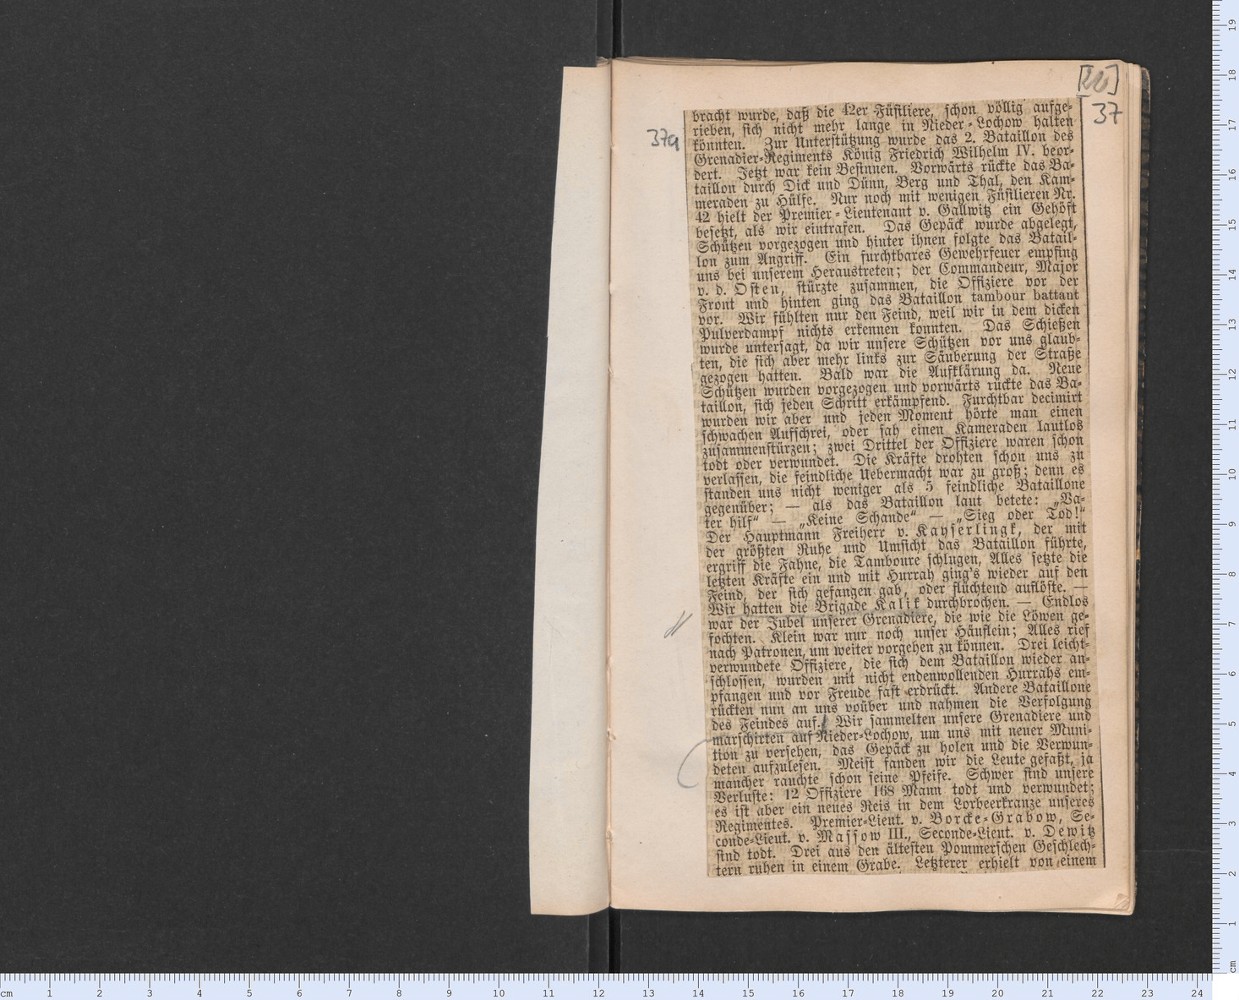 [22]
37
37a
bracht wurde, daß die 42er Füsiliere, schon völlig aufge-
rieben, sich nicht mehr lange in Nieder-Lochow halten
könnten. Zur Unterstützung wurde das 2. Bataillon des
Grenadier-Regiments König Friedrich Wilhelm IV. beor-
dert. Jetzt war kein Besinnen. Vorwärts rückte das Ba-
taillon durch Dick und Dünn, Berg und Thal, den Kam-
meraden zu Hülfe. Nur noch mit wenigen Füsilieren Nr.
42 hielt der Premier-Lieutenant v. Gallwitz ein Gehöft
besetzt, als wir eintrafen. Das Gepäck wurde abgelegt,
Schützen vorgezogen und hinter ihnen folgte das Batail-
lon zum Angriff. Ein furchtbares Gewehrfeuer empfing
uns bei unserem Heraustreten; der Commandeur, Major
v. d. Osten, stürzte zusammen, die Offiziere vor der
Front und hinten ging das Bataillon tambour battant
vor. Wir fühlten nur den Feind, weil wir in dem dicken
Pulverdampf nichts erkennen konnten. Das Schießen
wurde untersagt, da wir unsere Schützen vor uns glaub-
ten, die sich aber mehr links zur Säuberung der Straße
gezogen hatten. Bald war die Aufklärung da. Neue
Schützen wurden vorgezogen und vorwärts rückte das Ba-
taillon, sich jeden Schritt erkämpfend. Furchtbar decimirt
wurden wir aber und jeden Moment hörte man einen
schwachen Aufschrei, oder sah einen Kameraden lautlos
zusammenstürzen; zwei Drittel der Offiziere waren schon
todt oder verwundet. Die Kräfte drohten schon uns zu
verlassen, die feindliche Uebermacht war zu groß; denn es
standen uns nicht weniger als 5 feindliche Bataillone
gegenüber; — als das Bataillon laut betete: „Va-
ter hilf“ — „Keine Schande“ — „Sieg oder Tod!“
Der Hauptmann Freiherr v. Kayserlingk, der mit
der größten Ruhe und Umsicht das Bataillon führte,
ergriff die Fahne, die Tamboure schlugen, Alles setzte die
letzten Kräfte ein und mit Hurrah ging's wieder auf den
Feind, der sich gefangen gab, oder flüchtend auflöste. —
Wir hatten die Brigade Kalik durchbrochen. — Endlos
war der Jubel unserer Grenadiere, die wie die Löwen ge-
fochten. Klein war nur noch unser Häuflein; Alles rief
nach Patronen, um weiter vorgehen zu können. Drei leicht-
verwundete Offiziere, die sich dem Bataillon wieder an-
schlossen, wurden mit nicht endenwollenden Hurrahs em-
pfangen und vor Freude fast erdrückt. Andere Bataillone
rückten nun an uns voüber und nahmen die Verfolgung
des Feindes auf. Wir sammelten unsere Grenadiere und
marschirten auf Nieder-Lochow, um uns mit neuer Muni-
tion zu versehen, das Gepäck zu holen und die Verwun-
deten aufzulesen. Meist fanden wir die Leute gefaßt, ja
mancher rauchte schon seine Pfeife. Schwer sind unsere
Verluste: 12 Offiziere 168 Mann todt und verwundet;
es ist aber ein neues Reis in dem Lorbeerkranze unseres
Regimentes. Premier-Lieut. v. Borcke-Grabow, Se-
conde-Lieut. v. Massow III., Seconde-Lieut. v. Dewitz
sind todt. Drei aus den ältesten Pommerschen Geschlech-
tern ruhen in einem Grabe. Letzterer erhielt von einem